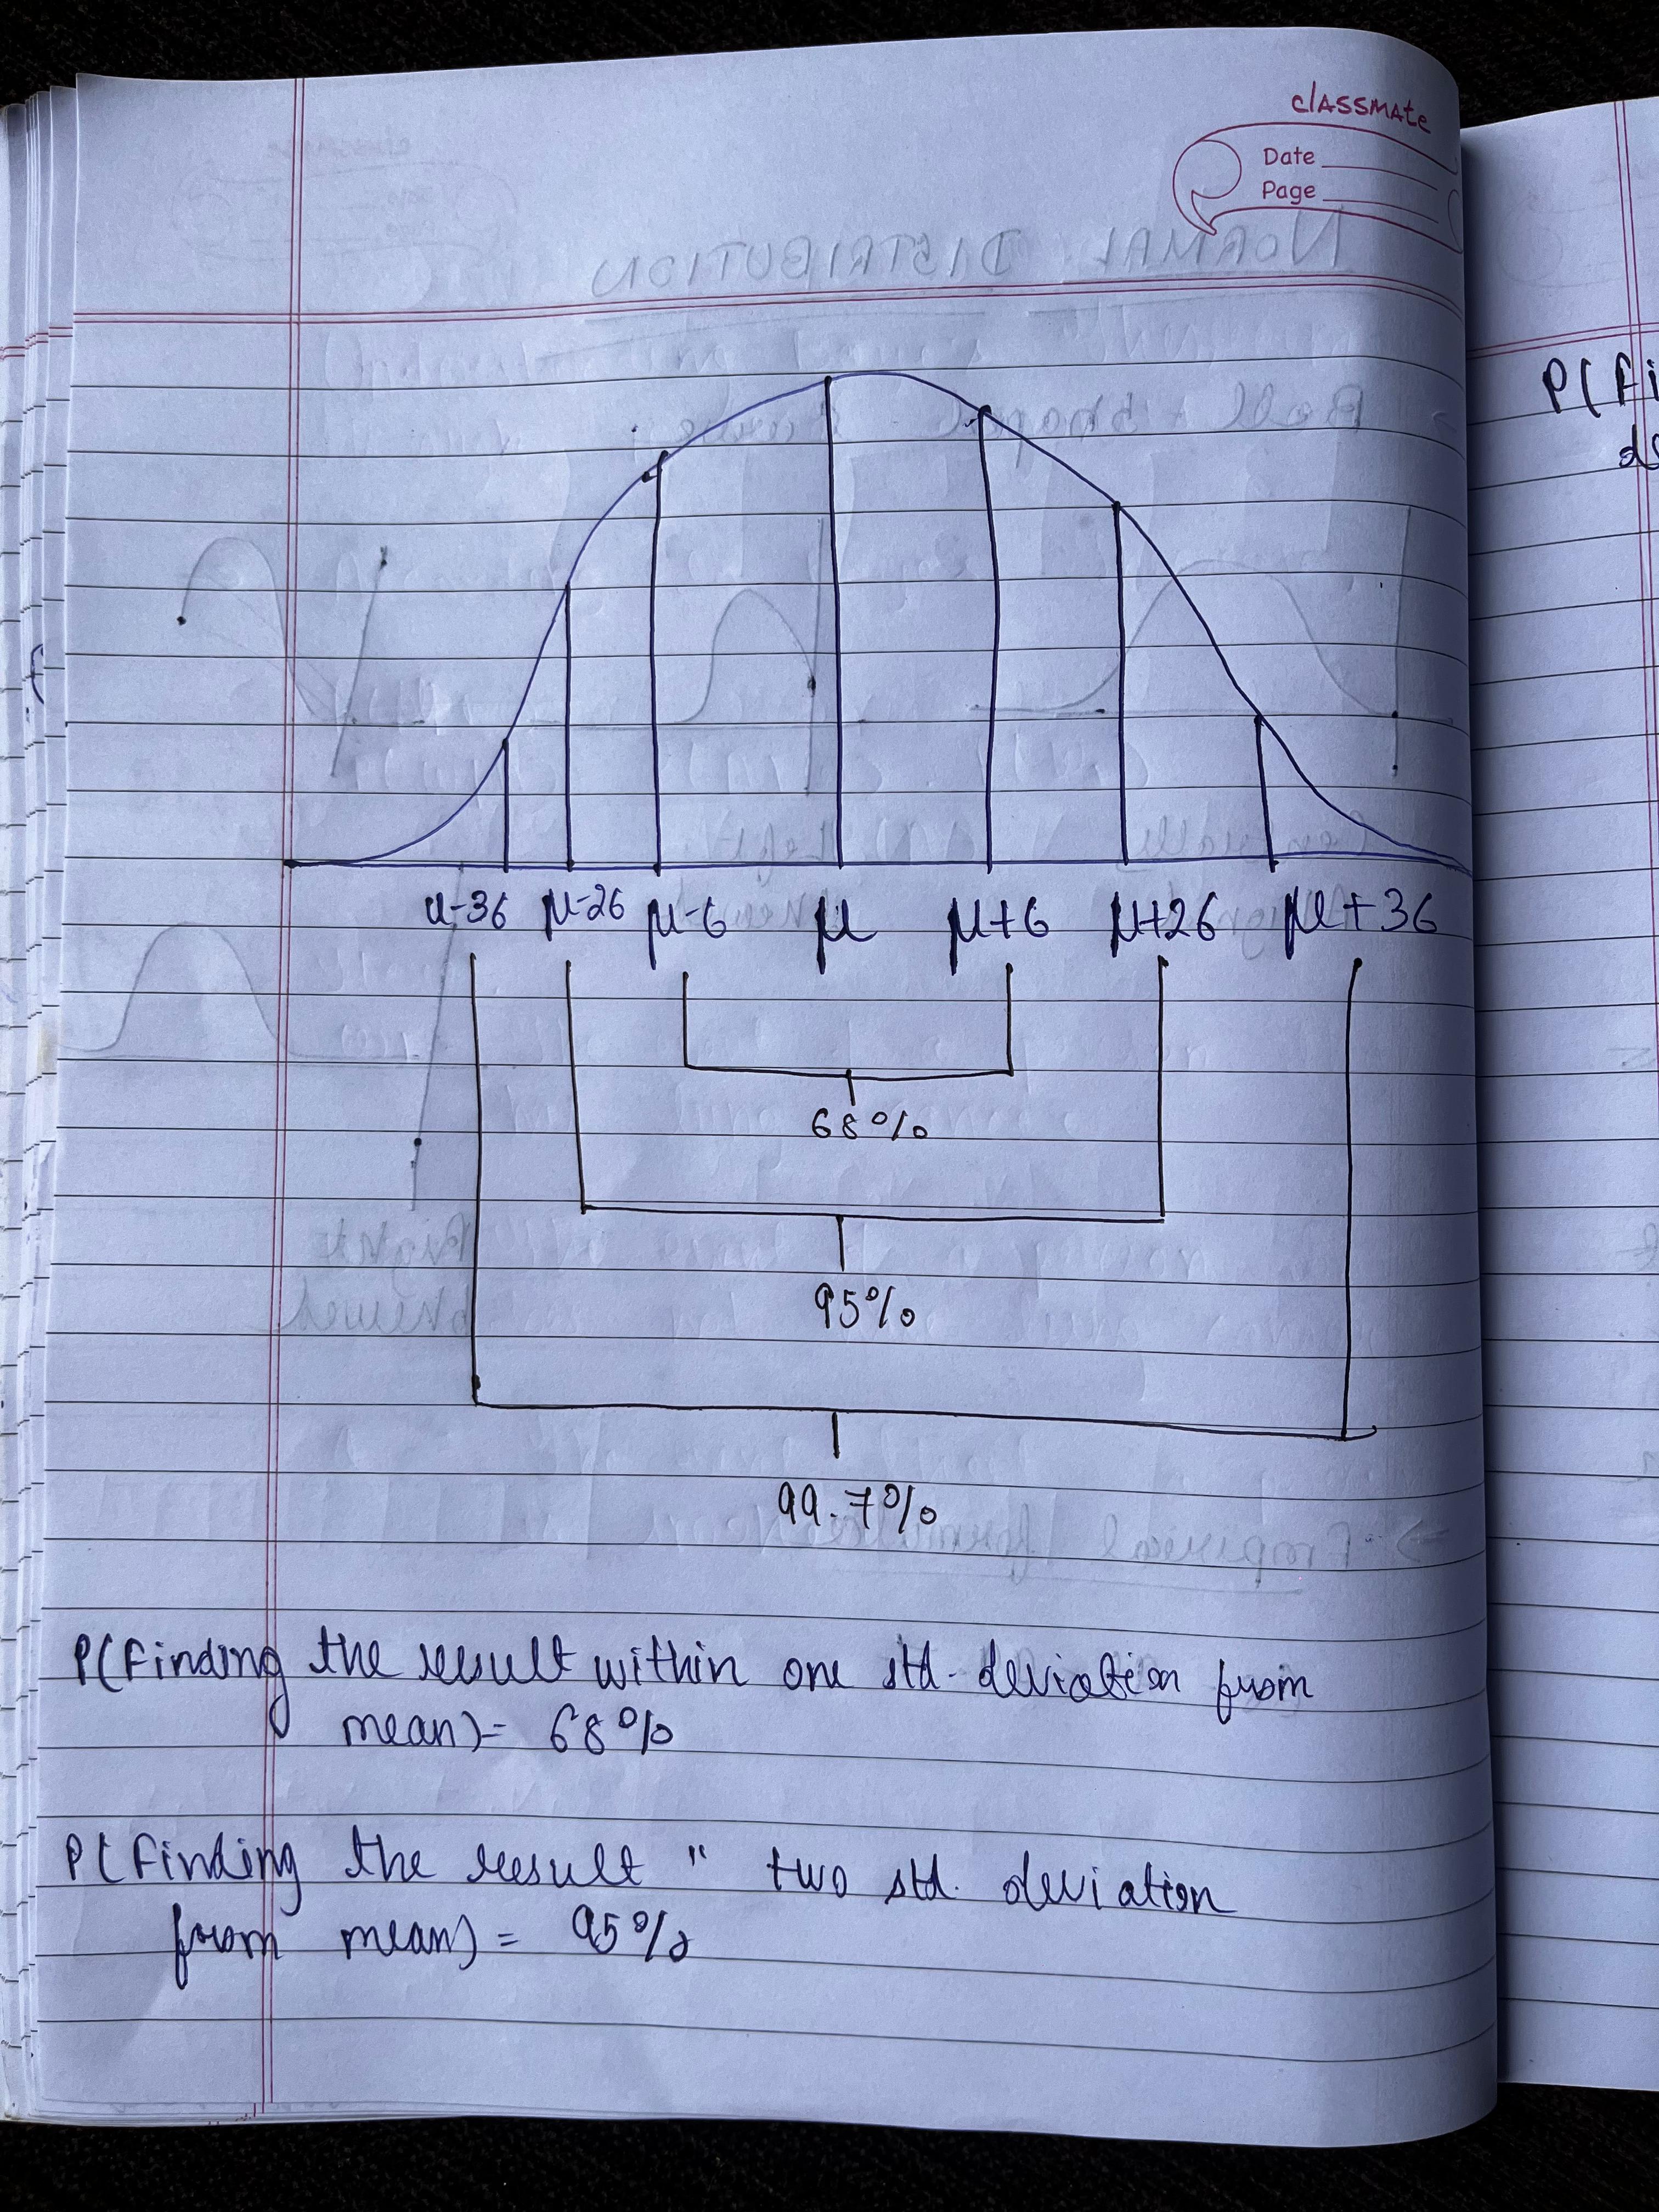 classmate
Date
Page
μ-3σ μ-2σ μ-σ μ μ+σ μ+2σ μ+3σ
68%
95%
99.7%
P(Finding the result within one std. deviation from
mean)= 68%
P(Finding the result " two std. deviation
from mean) = 95%
P(Fi
de